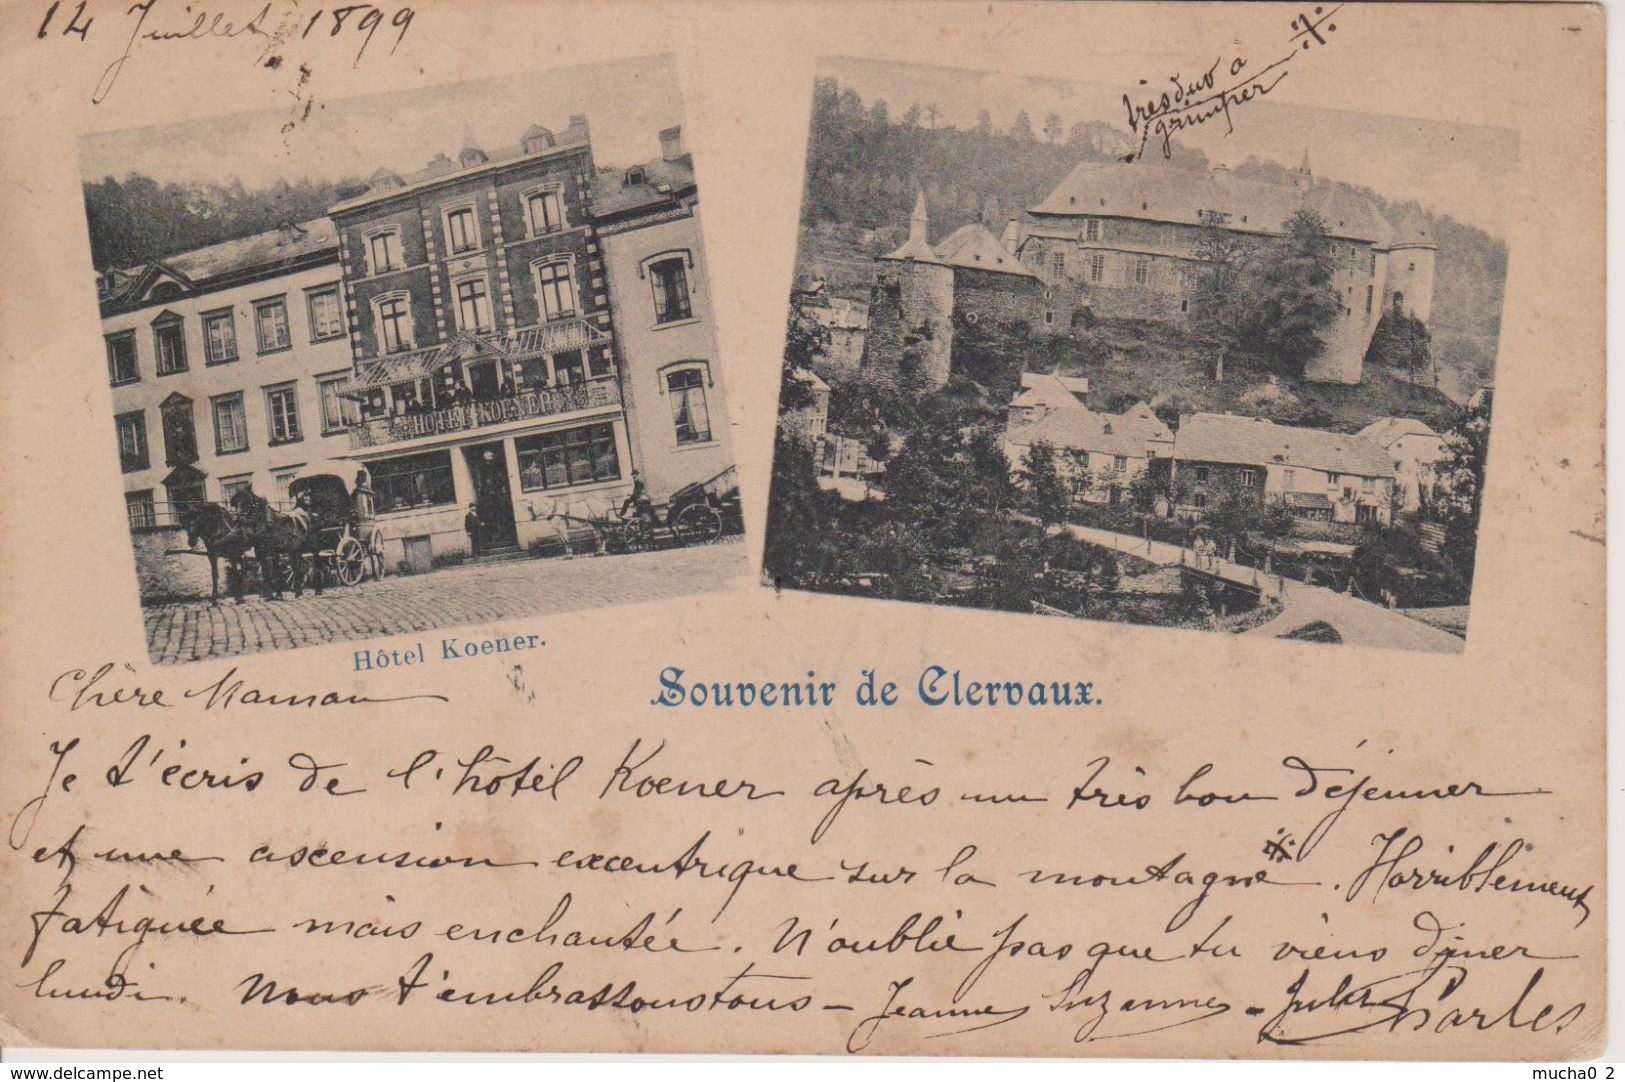 14 Juillet 1899
très dur à
grimper
HOTEL KOENER
Hôtel Koener.
Souvenir de Clervaux.
Chère Maman
Je t'écris de l'hôtel Koener après un très bon déjeuner
et une ascension excentrique sur la montagne. Horriblement
fatiguée mais enchantée. N'oublie pas que tu viens dîner
lundi. Nous t'embrassons tous – Jeanne Suzanne - Jules Charles
www.delcampe.net
mucha0_2